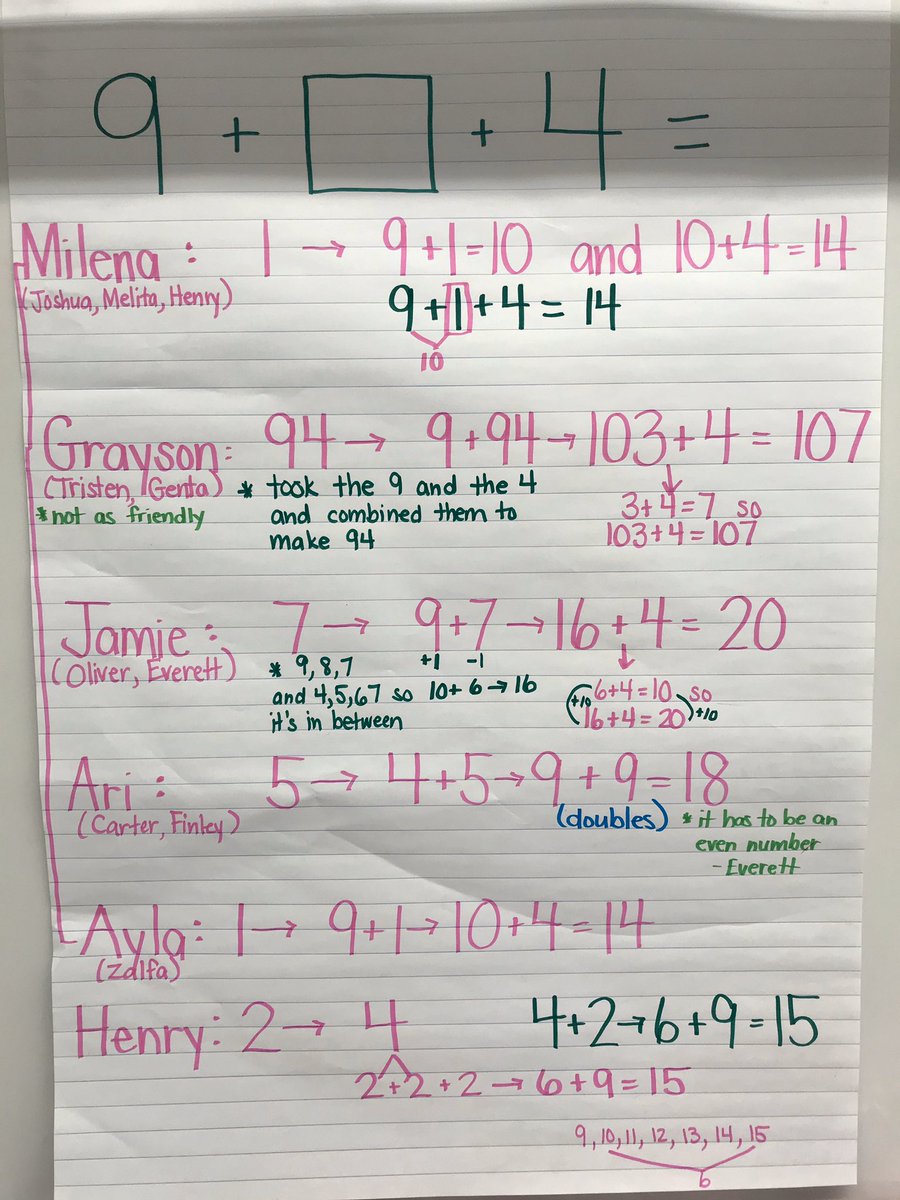 9 + □ + 4 =
Milena : 1 → 9+1=10 and 10+4=14
(Joshua, Melita, Henry)
9+1+4 = 14
10
Grayson: 94 → 9+94→103+4= 107
(Tristen, Genta) * took the 9 and the 4
*not as friendly and combined them to
make 94
3+4=7 so
103+4=107
Jamie: 7 → 9+7→16+4= 20
(Oliver, Everett) * 9,8,7 +1 -1
and 4,5,67 so 10+ 6→16
it's in between
+10 6+4=10 so
16+4=20 +10
Ari: 5→ 4+5→9+9=18
(Carter, Finley) (doubles) *it has to be an
even number
-Everett
Ayla: 1→ 9+1→10+4=14
(Zdlfa)
Henry: 2→ 4 4+2→6+9=15
2+2+2→6+9=15
9,10,11,12,13,14,15
6